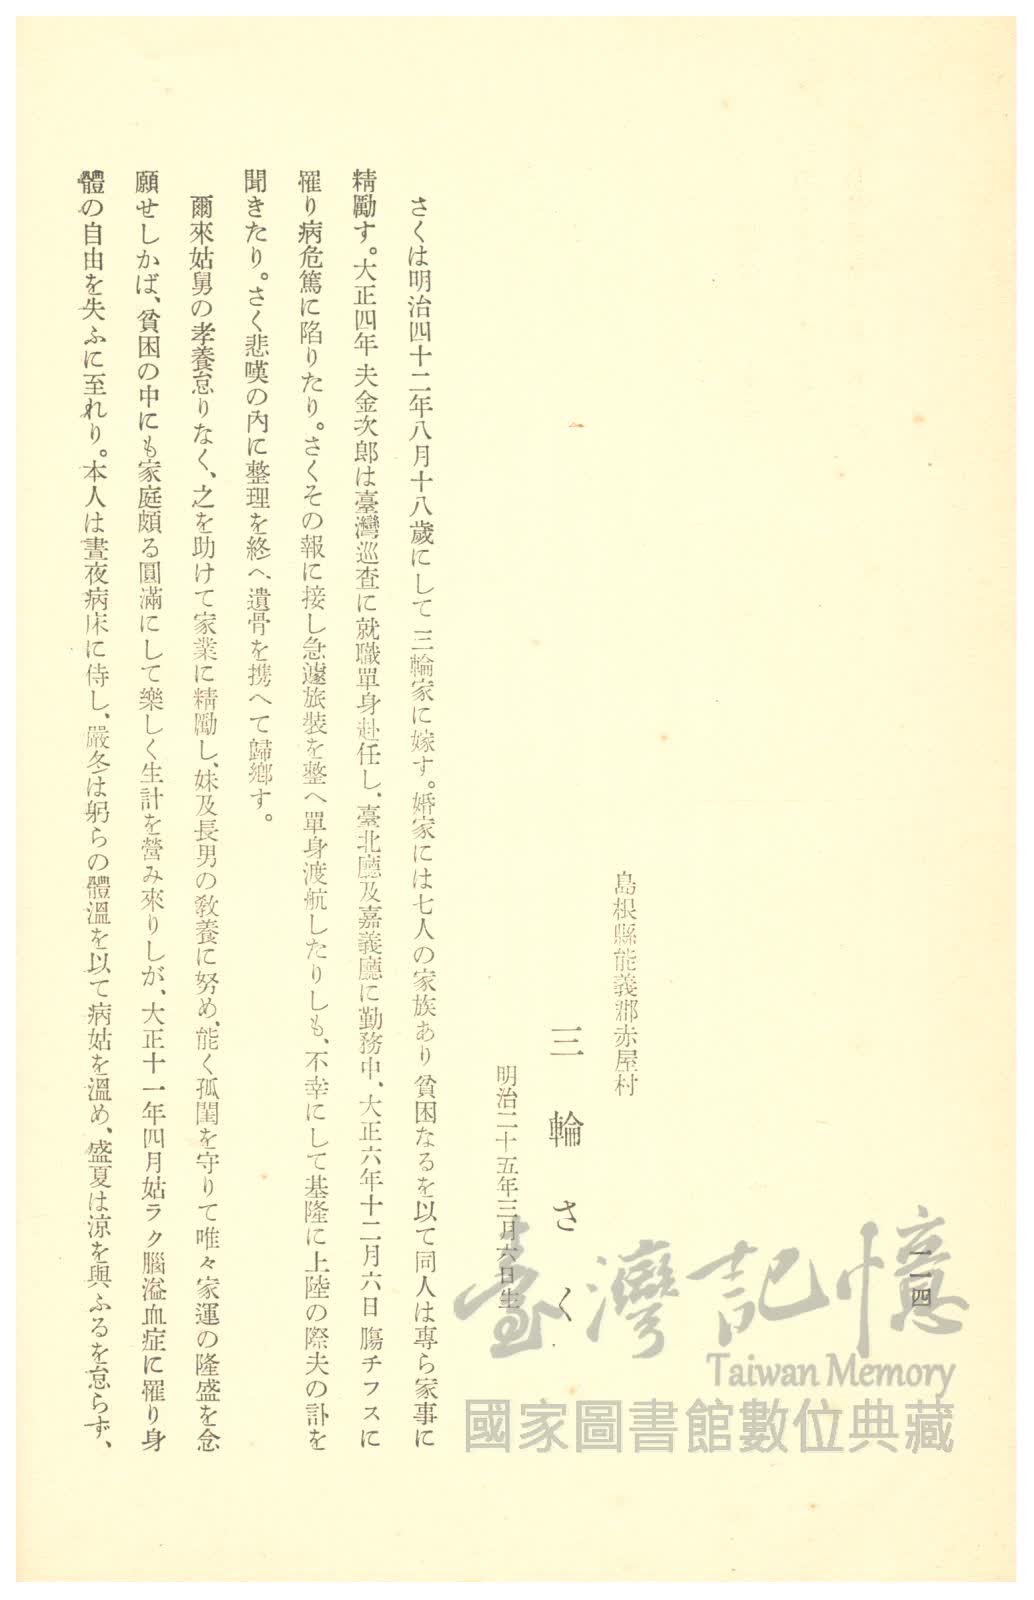 二一四
島根縣能義郡赤屋村
三輪さく
明治二十五年三月六日生
さくは明治四十二年八月十八歲にして三輪家に嫁す。婚家には七人の家族あり貧困なるを以て同人は專ら家事に
精勵す。大正四年夫金次郎は臺灣巡査に就職單身赴任し、臺北廳及嘉義廳に勤務中、大正六年十二月六日腸チフスに
罹り病危篤に陷りたり。さくその報に接し急遽旅裝を整へ單身渡航したりしも、不幸にして基隆に上陸の際夫の訃を
聞きたり。さく悲嘆の內に整理を終へ、遺骨を携へて歸鄕す。
爾來姑舅の孝養怠りなく、之を助けて家業に精勵し、妹及長男の敎養に努め、能く孤閨を守りて唯々家運の隆盛を念
願せしかば、貧困の中にも家庭頗る圓滿にして樂しく生計を營み來りしが、大正十一年四月姑ラク腦溢血症に罹り身
體の自由を失ふに至れり。本人は晝夜病床に侍し、嚴冬は躬らの體溫を以て病姑を溫め、盛夏は涼を與ふるを怠らず、
臺灣記憶
Taiwan Memory
國家圖書館數位典藏